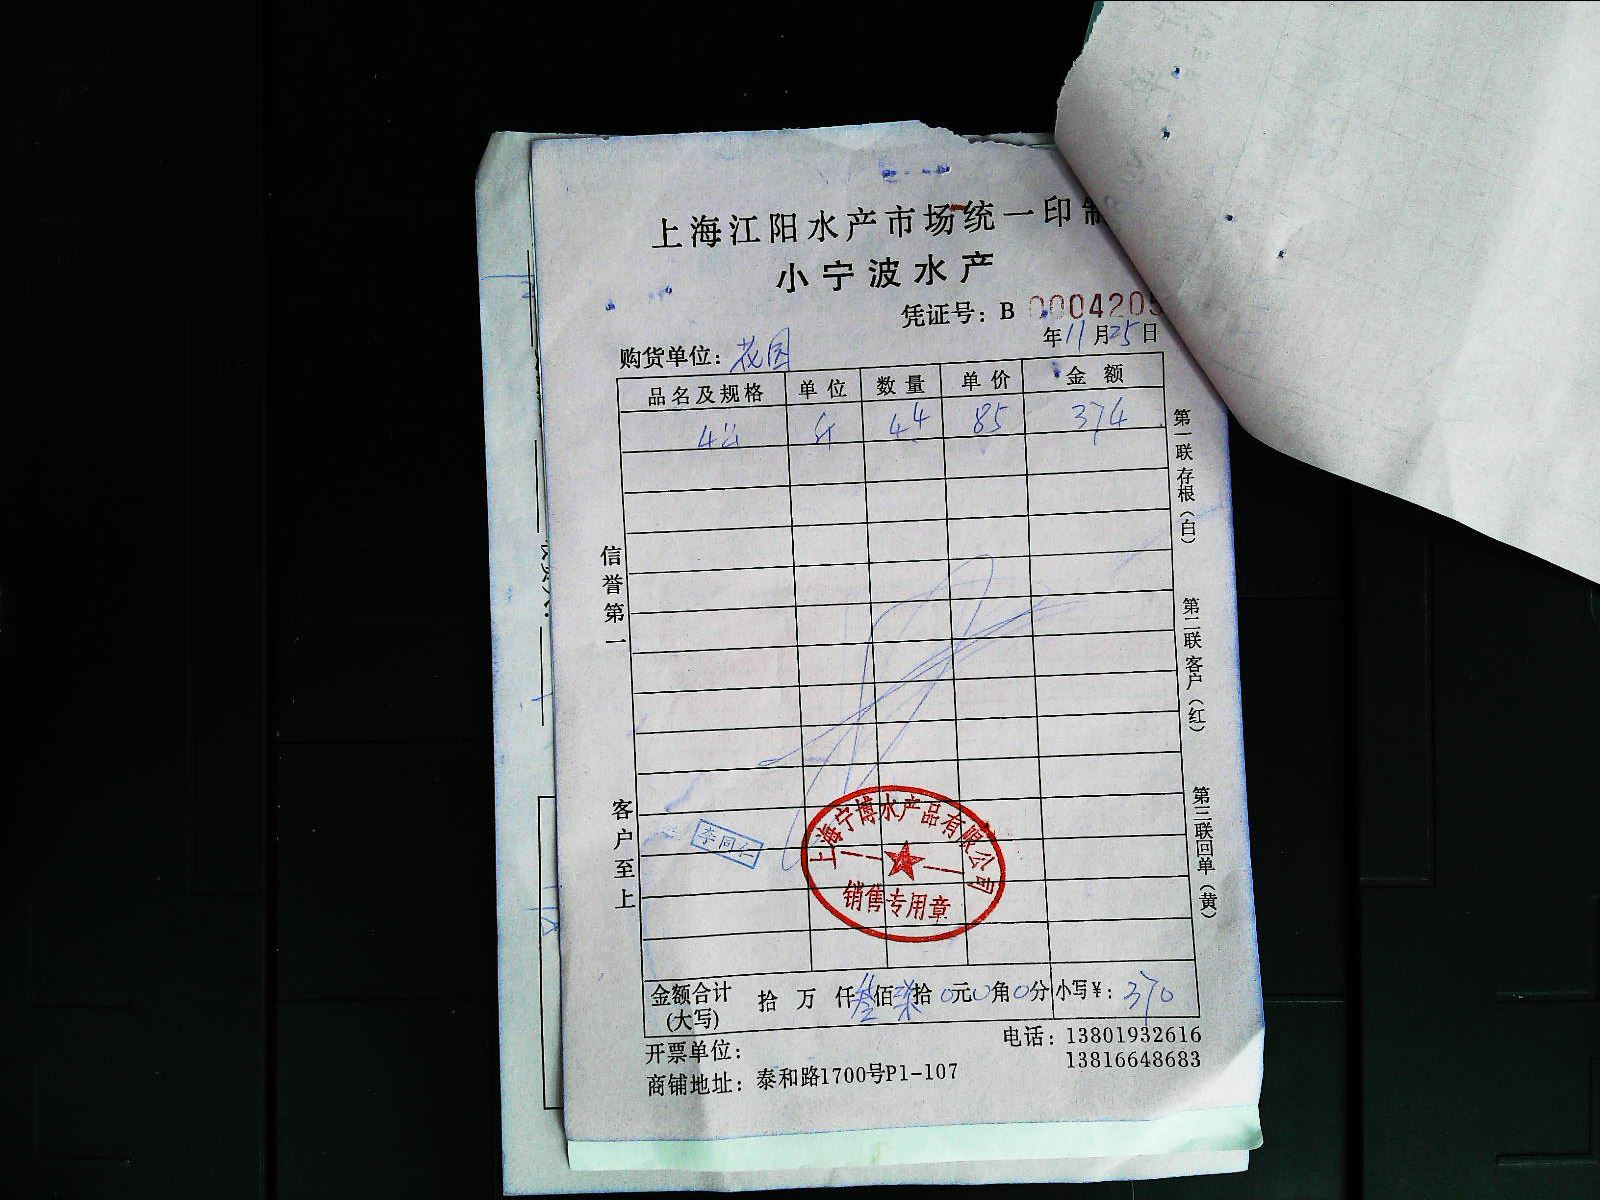 上海江阳水产市场统一印制
小宁波水产
凭证号：B 0004205
年11月25日
购货单位：花园
品名及规格 单位 数量 单价 金额
斤 44 85 374
第一联存根（白）
第二联客户（红）
第三联回单（黄）
信誉第一
客户至上
李同仁
上海宁博水产品有限公司
销售专用章
金额合计(大写) 拾 万 仟叁佰柒拾0元0角0分 小写¥：370
开票单位：
电话：13801932616
13816648683
商铺地址：泰和路1700号P1-107